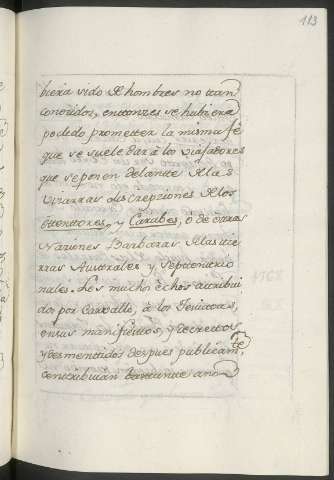 113
biera sido de hombres no tan
conosidos, entonzes se hubiera
podido prometter la misma fé
que se suele dar á los viajadores
que se ponen delante de las
vizarras discrepciones de los
Ottentores, y Caribes, ó de otras
Naziones Barbaras de las tie-
rras Australes y Septentrio
nales. Los muchos échos atribui
dos por Carvallo, á los Jesuitas,
en sus manifiestos, y decretos
y desmentidos despues publicamte,
contribuian bastante